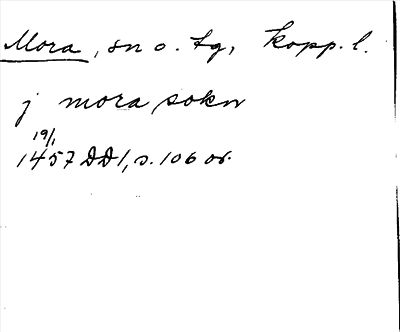 Mora, sn o. tg, Kopp. l.
j mora sokn
19/1
1457 DD1, s. 106 or.